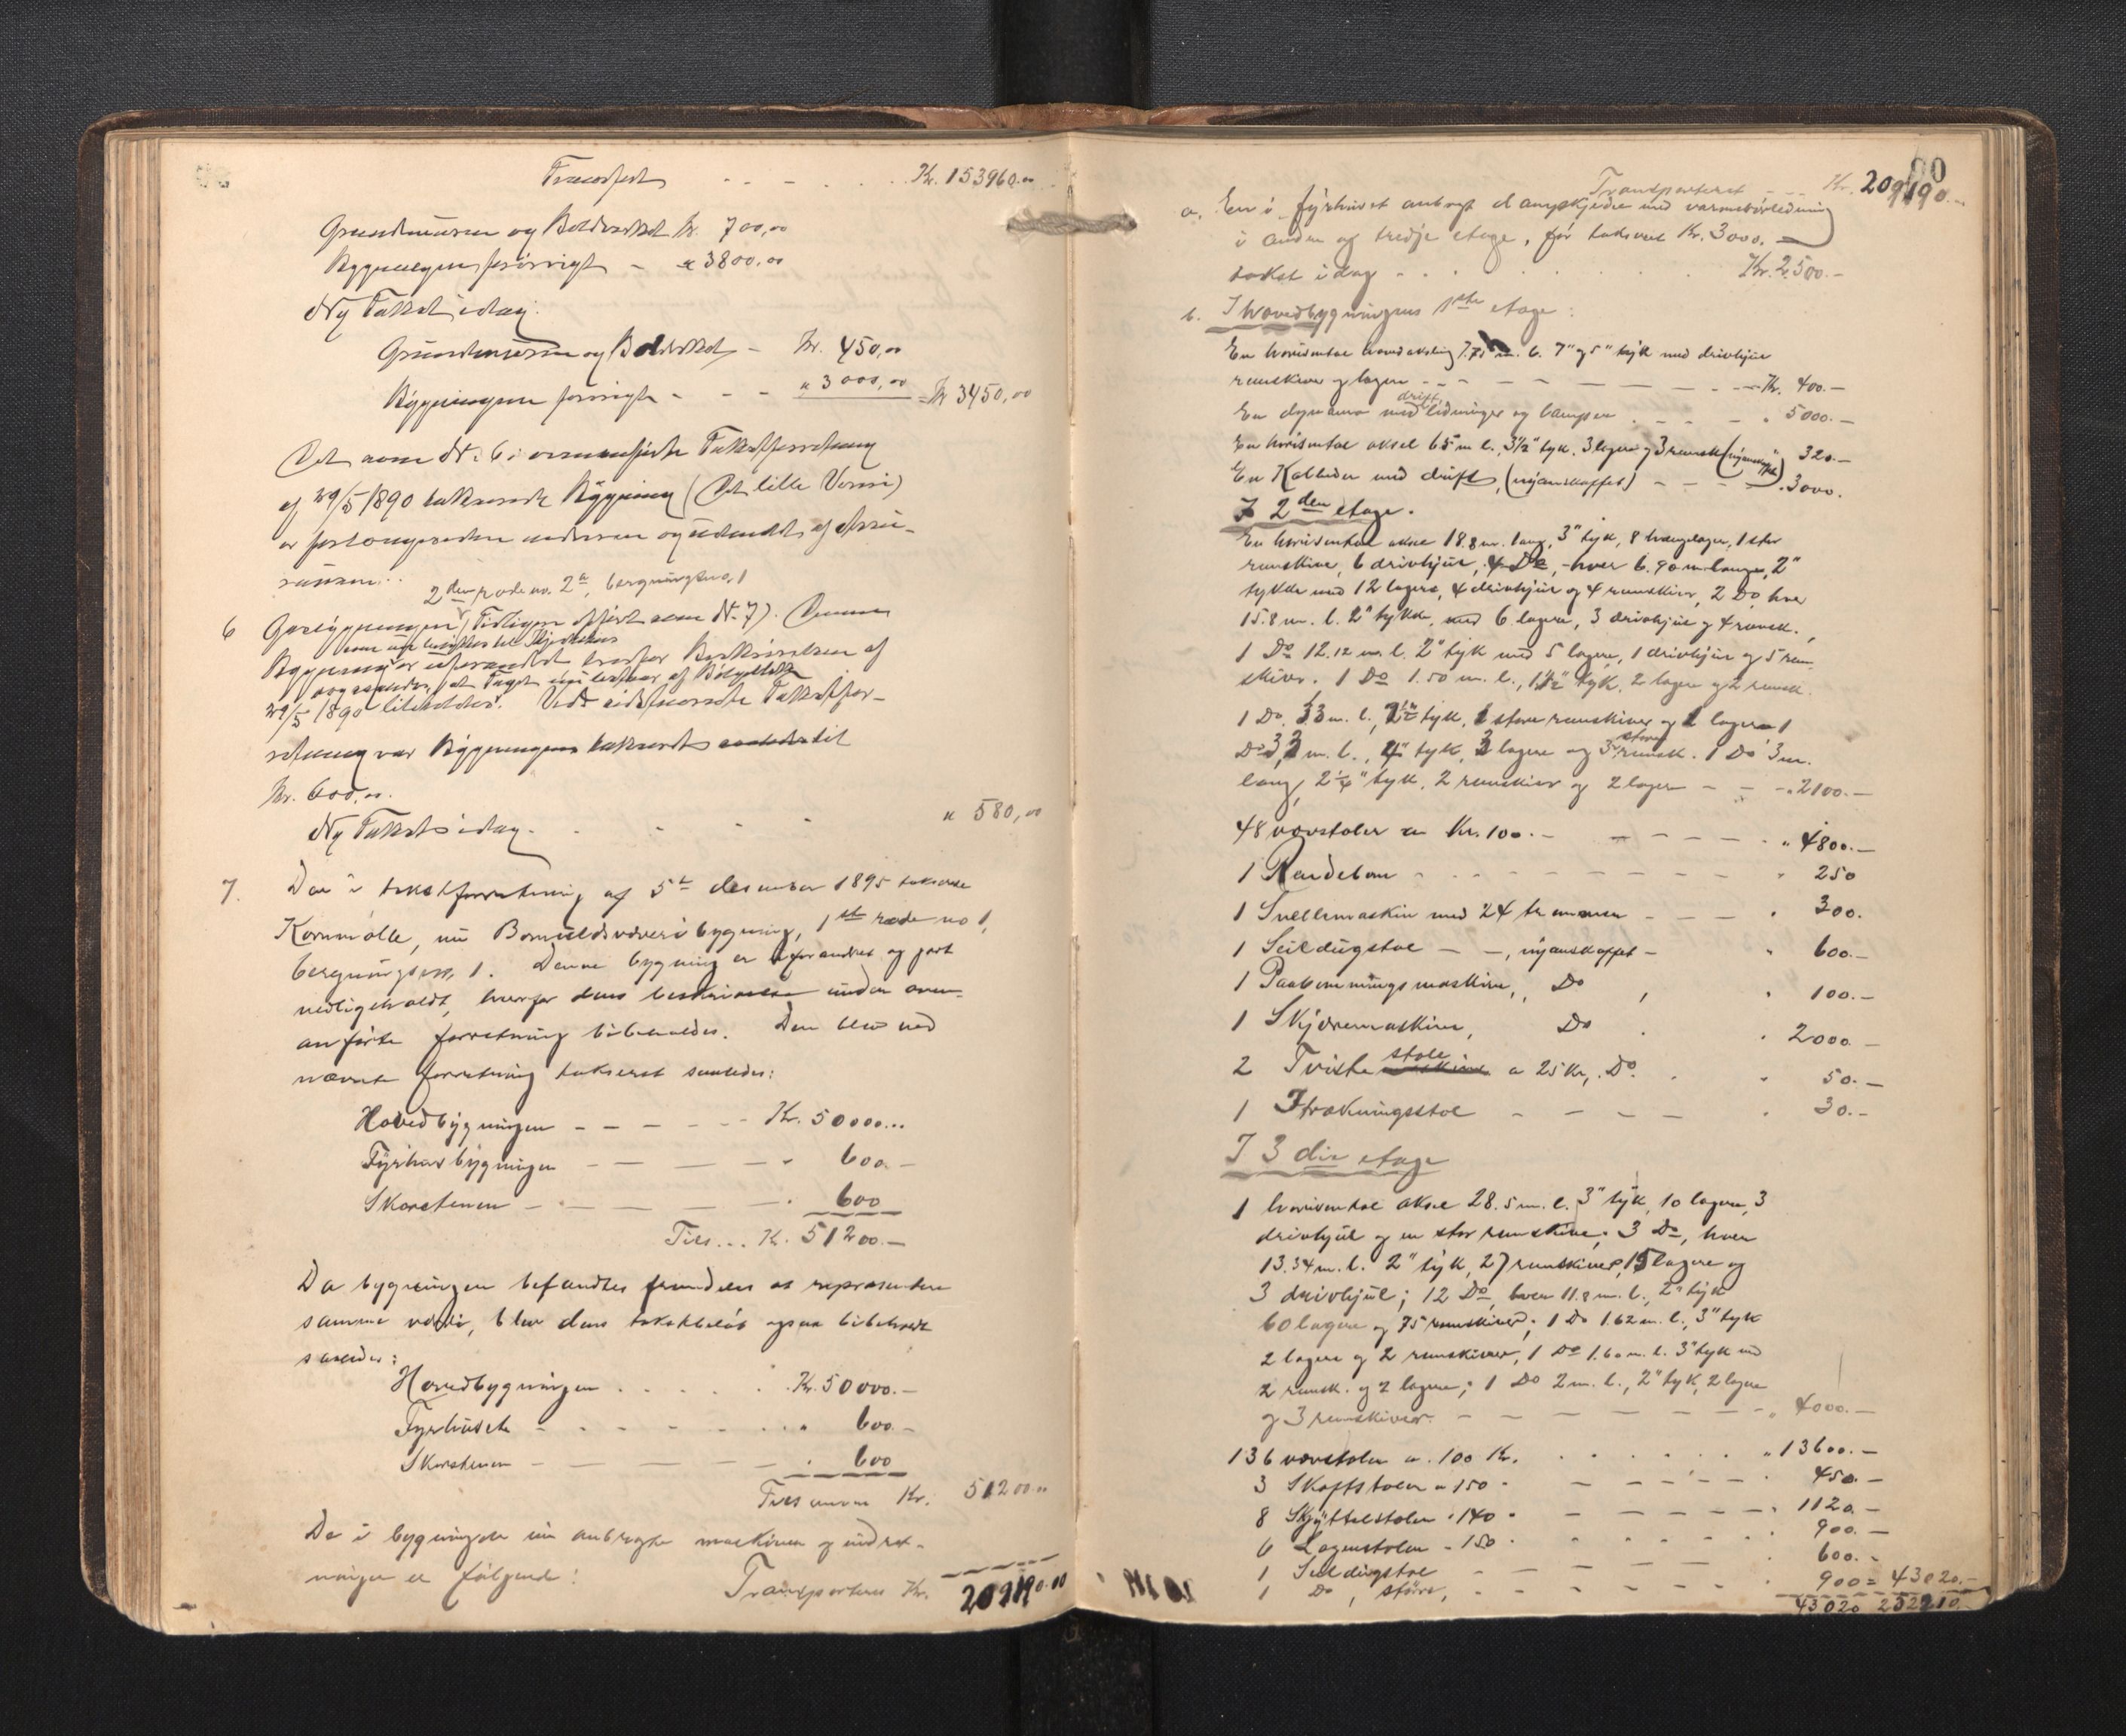 Transport - - - . . . Kr. 153960.00
Grundmuren og Boldverket Kr. 700,00
Bygningen forøvrigt - " 3800.00
Ny Takst idag:
Grundmuren og Boldverket - Kr. 450,00
Bygningen forøvrigt - - - " 3000,00 = Kr 3450,00
Det som No 6 i ovenanførte Takstforretning
af 29/5 1890 takserede Bygning (Det lille Væveri)
er forlængst nedreven og udmeldt af Assu-
rancen..
2den rode no. 2a, bergningsno. 1
6 Gasbygningen (Tidligere opført som No 7). Denne
som nu benyttes til
Bygning er uforandret hvorfor Beskrivelsen af
29/5 1890 bibeholdes. Ved sidstnævnte Takstfor-
retning var Bygningen takseret til
Kr. 600,00.
Ny Takst idag. - - - " 580,00
7. Den i takstforretning af 5te desember 1895 takserte
Kornmølle, nu Bomuldsvæveribygning, 1ste rode no 1,
bergningsno. 1. Denne bygning er uforandret og godt
vedligeholdt, hvorfor dens beskrivelse under oven-
anførte forretning bibeholdes. Den blev ved
nævnte forretning taksert saaledes:
Hovedbygningen - - - - - - Kr. 50000...
Fyrhusbygningen - - - - " 600.-
Skorstenen - - - - - . 600
Tils... Kr. 51200.-
Da bygningen befandtes fremdeles at repræsentere
samme værdi, blev dens takstbeløb ogsaa bibeholdt
saaledes:
Hovedbygningen . . . . . Kr. 50000.-
Fyrhuset - - - - - . . " 600.-
Skorstenen - - - - - . 600
Tilsammen Kr. 51200.00
De i bygningen nu anbragte maskiner og indret-
ninger er følgende:
Transporteres Kr. 209190.00
80
Transporteret - - - Kr. 209190.-
a. En i fyrhuset anbragt dampkjedel med varmerørledning
i anden og tredje etage, før takseret Kr. 3000.-
takst idag - - . . . . Kr. 2500.-
b. I hovedbygningens 1ste etage:
En horisontal hovedaksling 7.75 m. l. 7" og 5" tyk med drivhjul
remskiver og lagere - - - - - - - - Kr. 400.-
drift,
En dynamo med ledninger og lamper . - - - . 5000.-
En horisontal aksel 65 m l. 3½" tyk. 3 lagere og 3 remsk (nyanskaffet) " 320.-
En Kalander med drift, (nyanskaffet) - - - - . 3000.
I 2den etage.
En horisontal aksel 18.8 m. lang, 3" tyk, 8 hængelagere, 1 stor
remskive, 6 drivhjul, 4 Do, hver 6.90 m lange, 2"
tykke med 12 lagere, 4 drivhjul og 4 remskiver, 2 Do hver
15.8 m. l. 2" tykke, med 6 lagere, 3 drivhjul og 4 remsk.,
1 Do 12.12 m. l. 2" tyk med 5 lagere, 1 drivhjul og 5 rem-
skiver. 1 Do 1.50 m. l., 1½" tyk, 2 lagere og 2 remsk.
1 Do. 3.3 m. l., tyk, store remskiver og lagere 1
store
Do m. l., tyk, lagere og 3 remsk. 1 Do 3 m.
lang, 2¼" tyk, 2 remskiver og 2 lagere - - - " 2100.-
48 vævstoler a Kr. 100.- - - - - - . " 4800.-
1 Rendebom - - - - - - - - " 250
1 Snellemaskin med 24 trommer - - - . 300.
1 Seildugstol - -, nyanskaffet - " 600.-
1 Paabommingsmaskin, Do , " 100.-
1 Skjæremaskin, Do . . 2000.-
stole
2 Tviste maskine a 25 Kr, Do. . " 50.-
1 Itrækningsstol - - - - . 30.-
I 3die etage
1 horisontal aksel 28.5 m. l. 3" tyk, 10 lagere, 3
drivhjul og en stor remskive; 3 Do, hver
13.34 m. l. 2" tyk, 27 remskiver, 15 lagere og
3 drivhjul; 12 Do, hver 11.8 m. l., 2" tyk
60 lagere og 75 remskiver; 1 Do 1.62 m. l., 3" tyk
2 lagere og 2 remskiver, 1 Do 1.60 m. l. 3" tyk med
2 remsk. og 2 lagere; 1 Do 2 m. l., 2" tyk, 2 lagere
og 3 remskiver. - - - - - - - - " 4000.-
136 vævstoler a. 100 Kr. . . . . . " 13600.-
3 Skaftstoler a 150 - - - - - - . 450.-
8 Skyttelstoler " 140 - - - - - - " 1120.-
6 Lagenstoler - 150 . . . . . . 900.-
1 Seildugstol - - - - - . 600.-
1 Do, større, - - - - - . 900 = 43020.-
43020 252210.